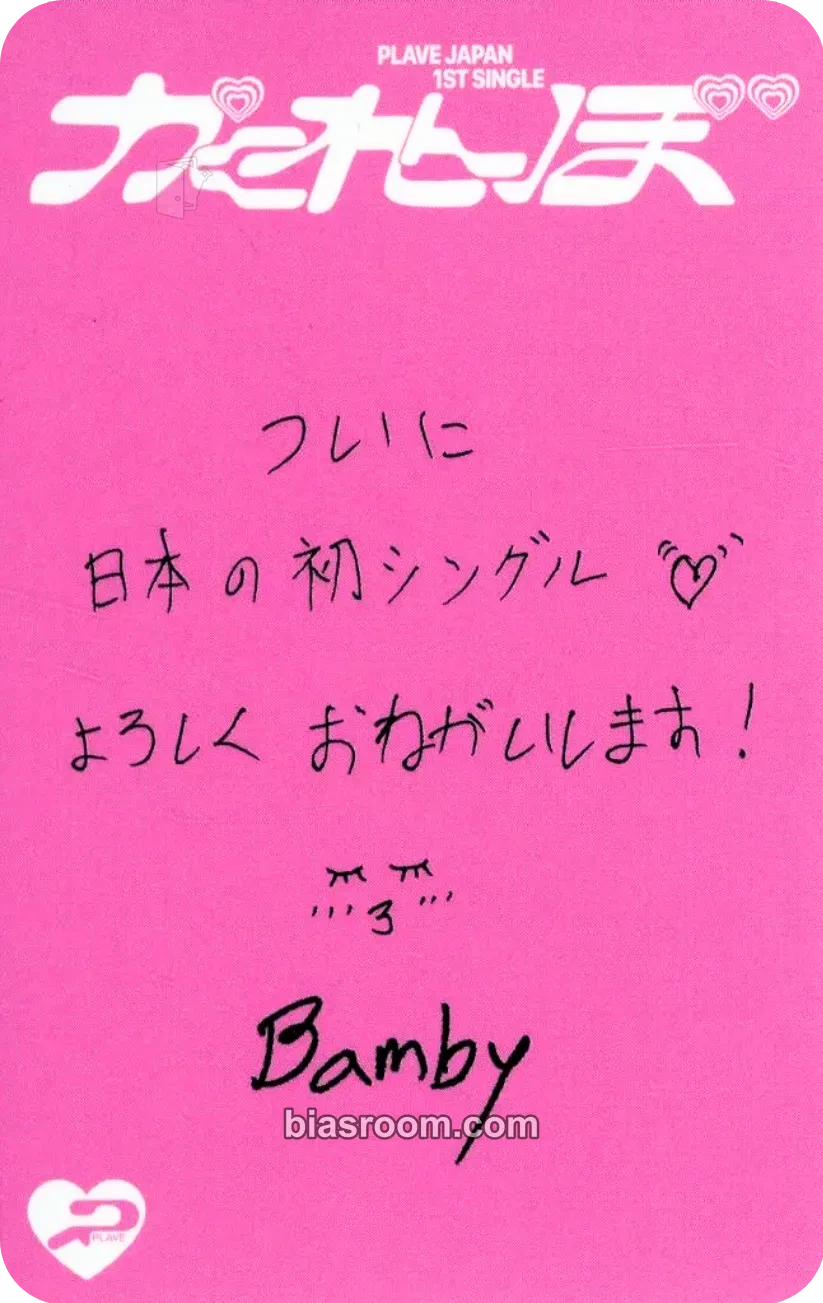 PLAVE JAPAN
1ST SINGLE
かくれんぼ
ついに
日本の初シングル
よろしく おねがいします!
Bamby
biasroom.com
PLAVE